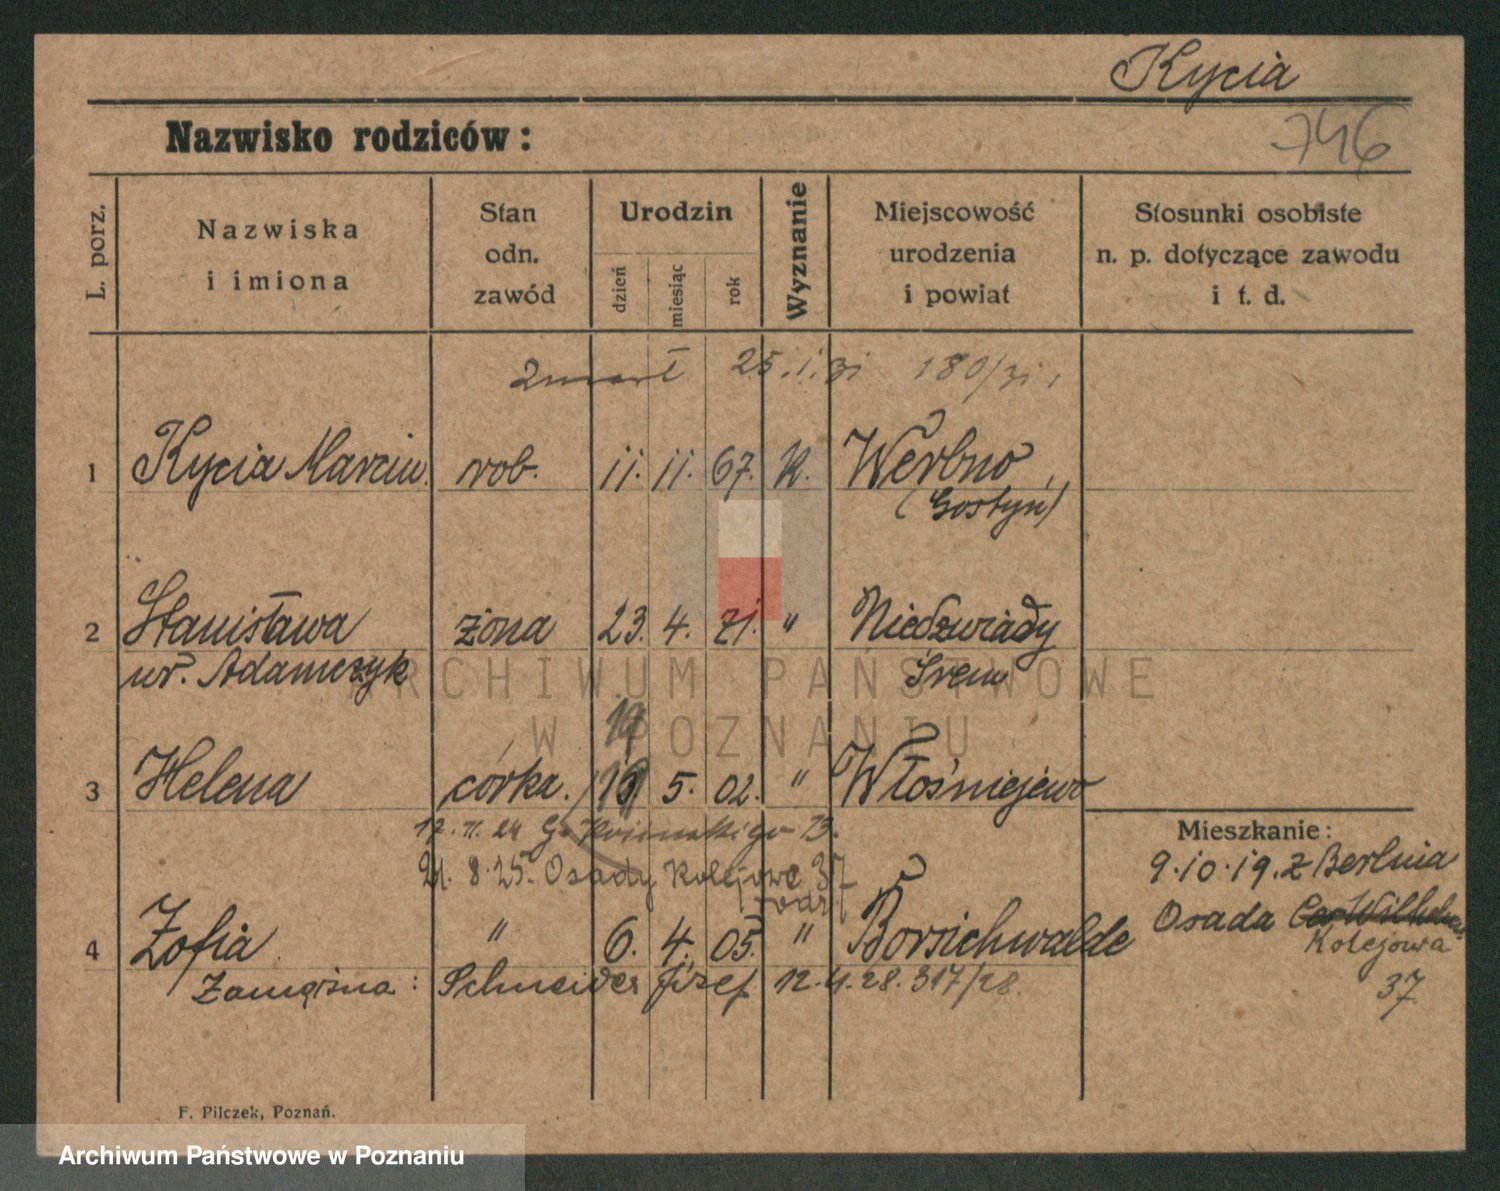 Kycia
746
Nazwisko rodziców:
L. porz.
Nazwiska
i imiona
Stan
odn.
zawód
Urodzin
dzień
miesiąc
rok
Wyznanie
Miejscowość
urodzenia
i powiat
Stosunki osobiste
n. p. dotyczące zawodu
i t. d.
zmarł 25.1.31 180/31
1 Kycia Marcin rob. 11. 11. 67. K. Werbno
(Gostyń)
2 Stanisława żona 23. 4. 71. " Niedzwiady
ur. Adamczyk Śrem
19
3 Helena córka 5. 02. " Włośniejewo
17.11.24
21.8.25. Osady Kolejowe 37
4 Zofia " 6. 4. 05. " Borsichwalde
Zamężna: Schneider Józef 12.4.28. 317/28
Mieszkanie:
9.10.19. z Berlina
Osada
Kolejowa
37
F. Pilczek, Poznań.
ARCHIWUM PAŃSTWOWE
W POZNANIU
Archiwum Państwowe w Poznaniu